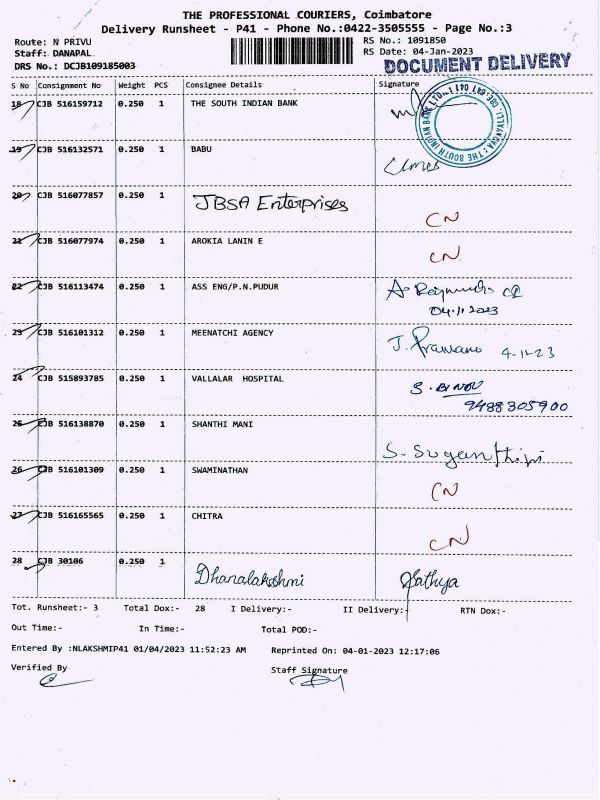 THE PROFESSIONAL COURIERS, Coimbatore
Delivery Runsheet - P41 - Phone No.:0422-3505555 - Page No.:3
Route: N PRIVU
Staff: DANAPAL
DRS No.: DCJB109185003
RS No.: 1091850
RS Date: 04-Jan-2023
DOCUMENT DELIVERY
S No Consignment No Weight PCS Consignee Details Signature
18 CJB 516159712 0.250 1 THE SOUTH INDIAN BANK
19 CJB 516132571 0.250 1 BABU
20 CJB 516077857 0.250 1 JBSA Enterprises CN
21 CJB 516077974 0.250 1 AROKIA LANIN E CN
22 CJB 516113474 0.250 1 ASS ENG/P.N.PUDUR
04.11.2023
23 CJB 516101312 0.250 1 MEENATCHI AGENCY J. 4-11-23
24 CJB 515893785 0.250 1 VALLALAR HOSPITAL S. BINOU
9488305900
25 CJB 516138870 0.250 1 SHANTHI MANI S. Suganthini
26 CJB 516101309 0.250 1 SWAMINATHAN CN
27 CJB 516165565 0.250 1 CHITRA CN
28 CJB 30106 0.250 1 Dhanalakshmi Sathya
Tot. Runsheet:- 3 Total Dox:- 28 I Delivery:- II Delivery:- RTN Dox:-
Out Time:- In Time:- Total POD:-
Entered By :NLAKSHMIP41 01/04/2023 11:52:23 AM Reprinted On: 04-01-2023 12:17:06
Verified By Staff Signature